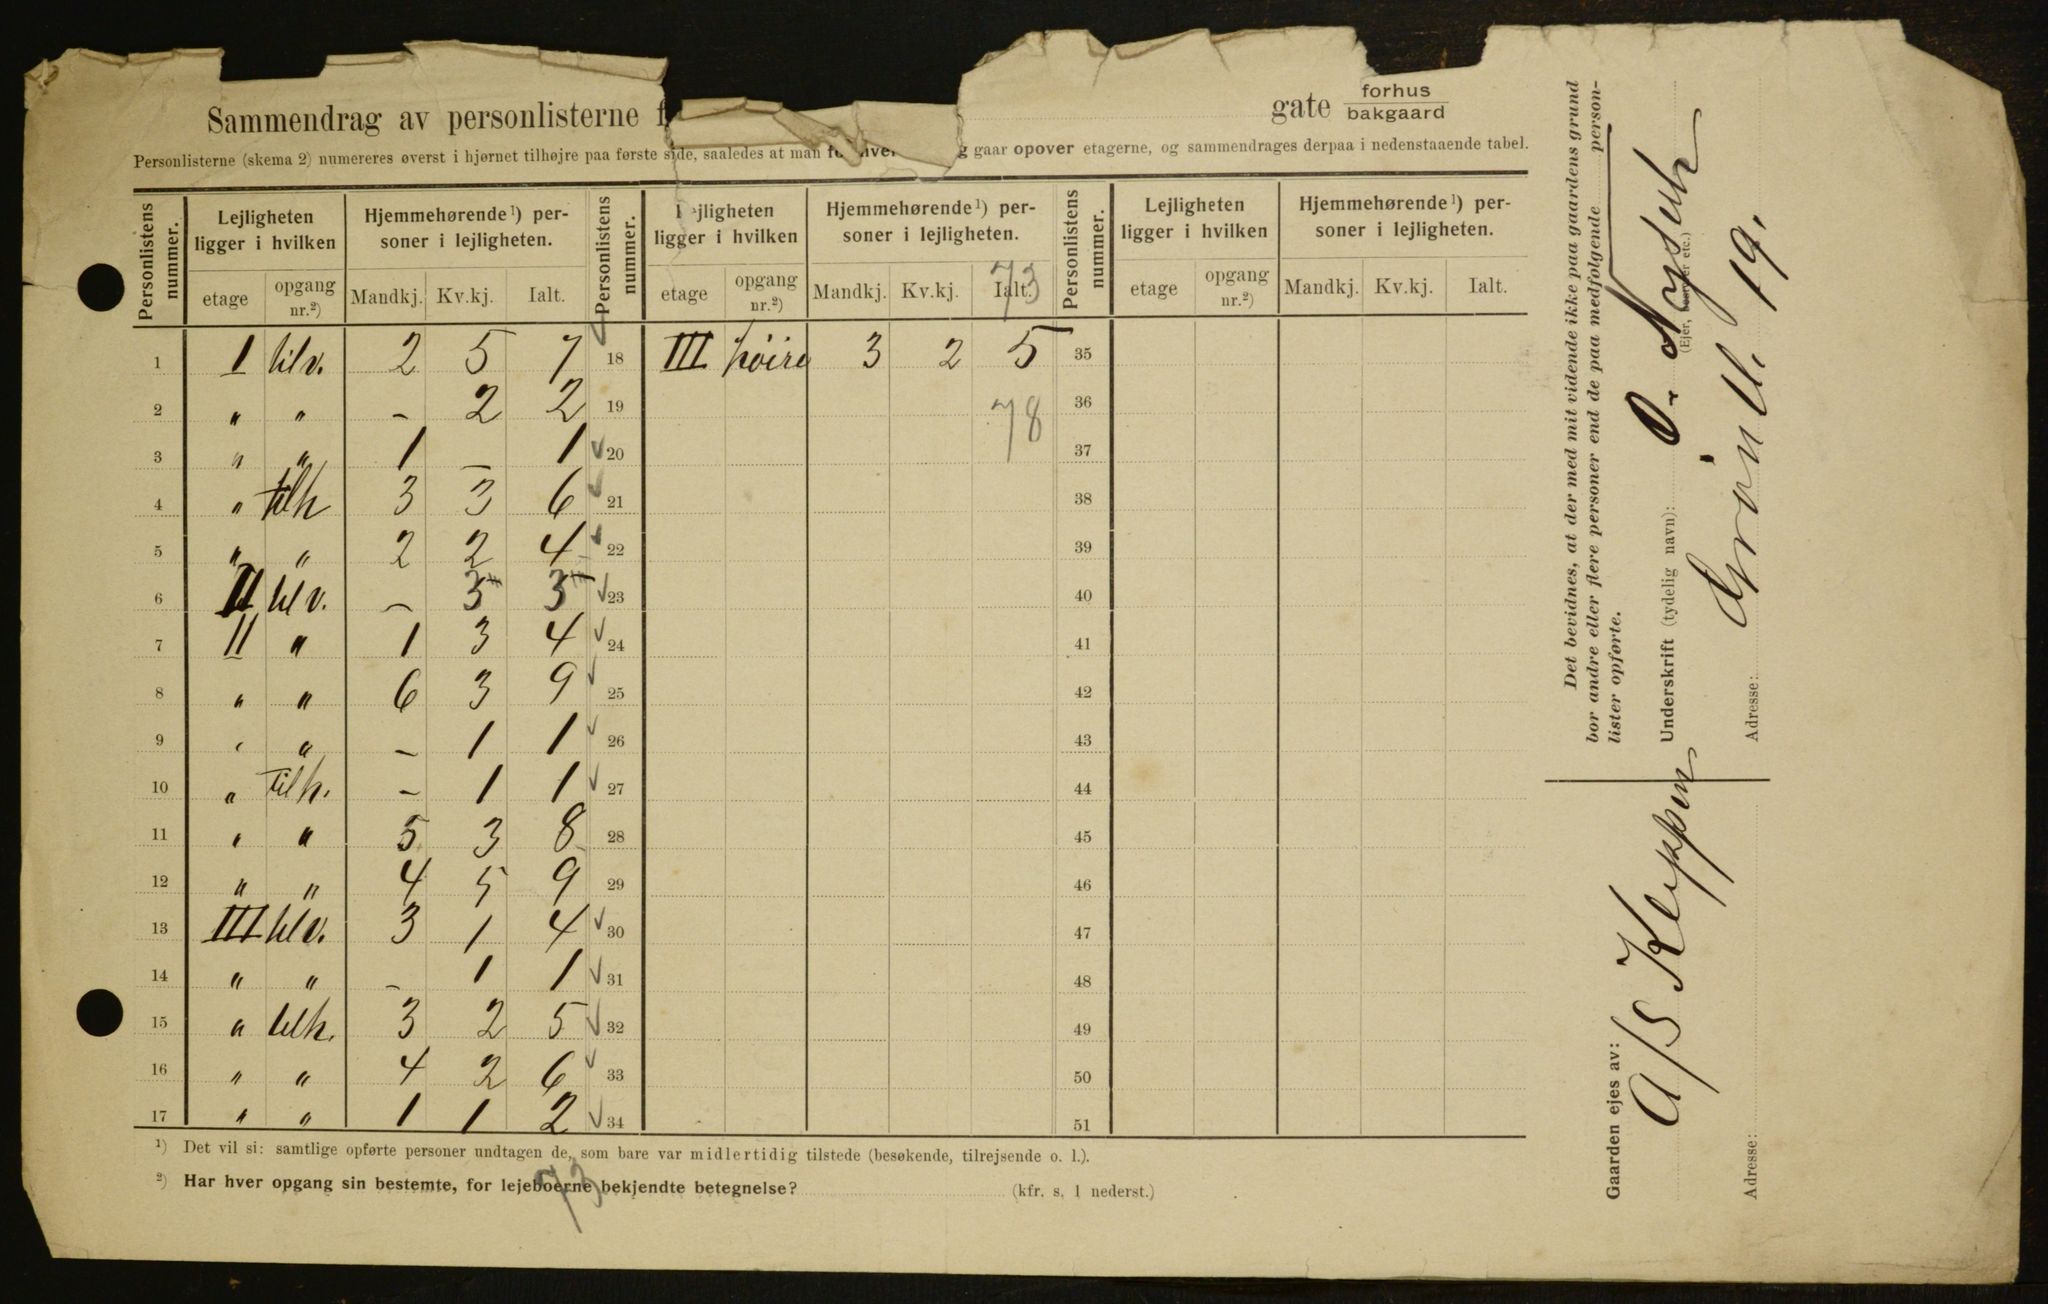 Sammendrag av personlisterne
gate forhus
bakgaard
Personlisterne (skema 2) numereres øverst i hjørnet tilhøjre paa første side, saaledes at man gaar opover etagerne, og sammendrages derpaa i nedenstaaende tabel.
Personlistens nummer. Lejligheten ligger i hvilken Hjemmehørende ¹) personer i lejligheten. Personlistens nummer. Lejligheten ligger i hvilken Hjemmehørende ¹) personer i lejligheten. Personlistens nummer. Lejligheten ligger i hvilken Hjemmehørende ¹) personer i lejligheten.
etage opgang nr.²) Mandkj. Kv.kj. Ialt. etage opgang nr.²) Mandkj. Kv.kj. Ialt. etage opgang nr.²) Mandkj. Kv.kj. Ialt.
73
1 I til v. 2 5 7 18 III høire 3 2 5 35
2 " " – 2 2 19 78 36
3 " " 1 – 1 20 37
4 " til h 3 3 6 21 38
5 " " 2 2 4 22 39
6 II til v. – 3 3 23 40
7 II " 1 3 4 24 41
8 " " 6 3 9 25 42
9 " " – 1 1 26 43
10 " til h. – 1 1 27 44
11 " " 5 3 8 28 45
12 " " 4 5 9 29 46
13 III til v. 3 1 4 30 47
14 " " – 1 1 31 48
15 " til h. 3 2 5 32 49
16 " " 4 2 6 33 50
17 " " 1 1 2 34 51
¹) Det vil si: samtlige opførte personer undtagen de, som bare var midlertidig tilstede (besøkende, tilrejsende o. l.).
²) Har hver opgang sin bestemte, for lejeboerne bekjendte betegnelse? (kfr. s. 1 nederst.)
73
Det bevidnes, at der med mit vidende ikke paa gaardens grund
bor andre eller flere personer end de paa medfølgende personlister opførte.
Underskrift (tydelig navn): O. Nyseth
(Ejer, bestyrer etc.)
Adresse: Grønl. 19.
Gaarden ejes av: A/S Kleppen
Adresse: